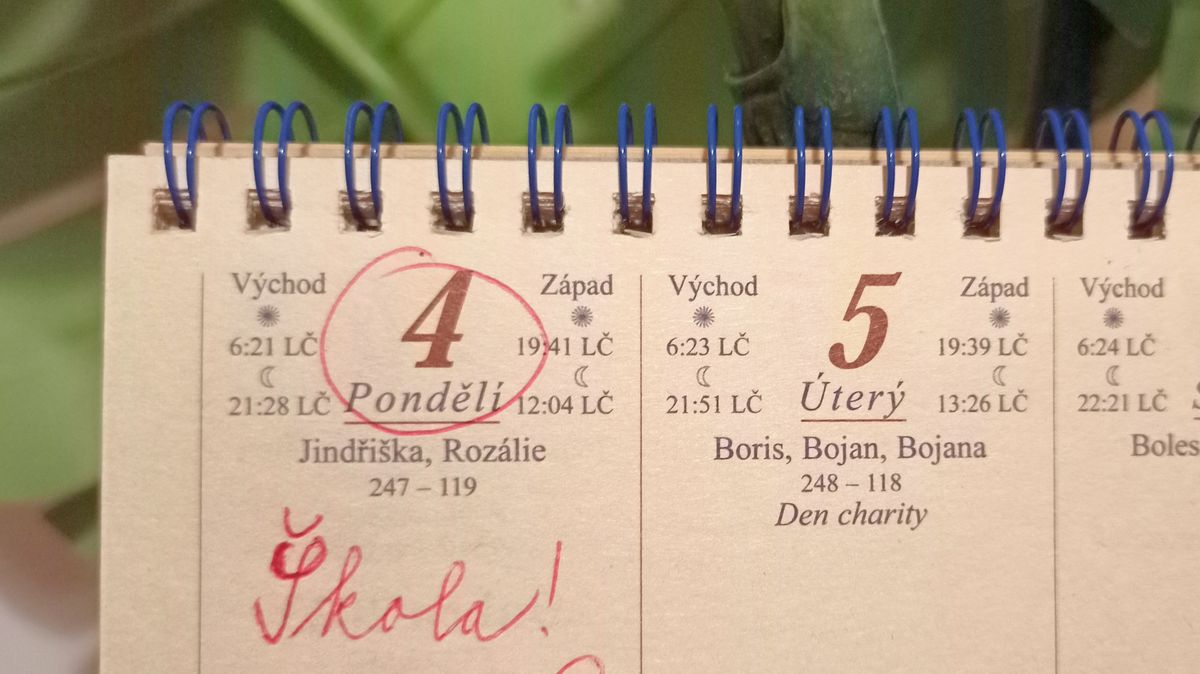 Východ
4
Západ
6:21 LČ
19:41 LČ
21:28 LČ
Pondělí
12:04 LČ
Jindřiška, Rozálie
247 – 119
Škola!
Východ
5
Západ
6:23 LČ
19:39 LČ
21:51 LČ
Úterý
13:26 LČ
Boris, Bojan, Bojana
248 – 118
Den charity
Východ
6:24 LČ
22:21 LČ
Boles